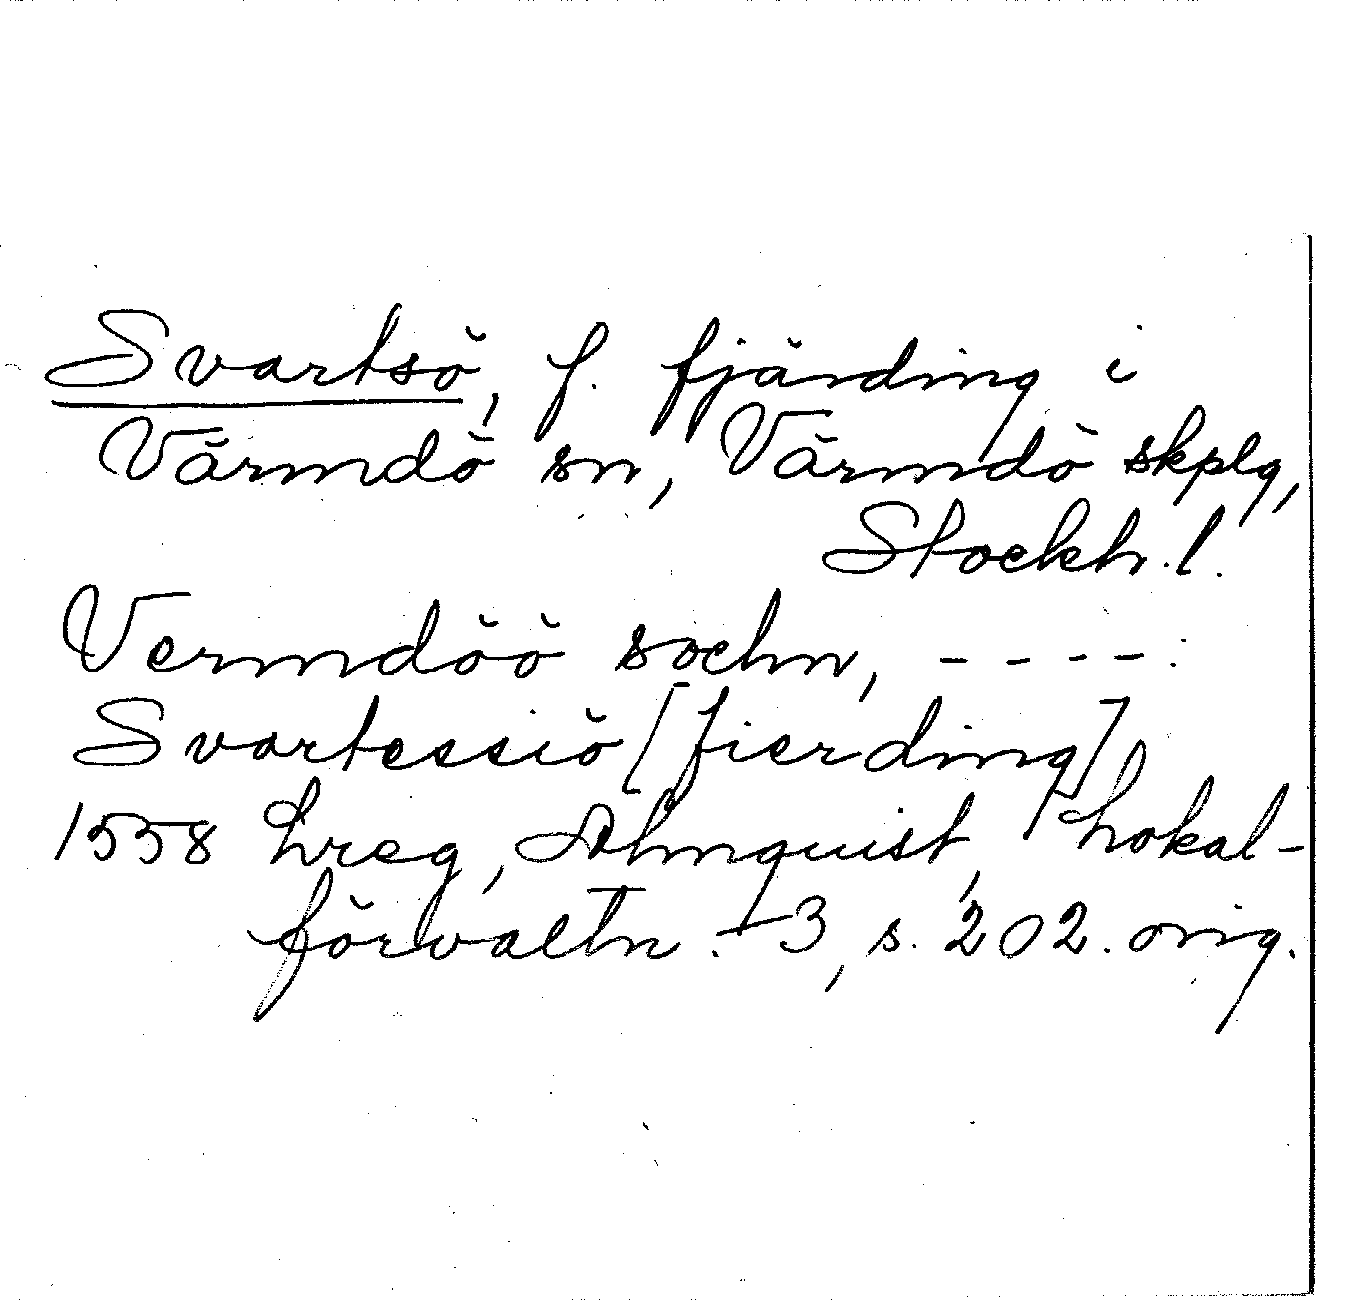 Svartsö, f. fjärding i
Värmdö sn, Värmdö skplg,
Stockh. l.
Vermdöö sochn, ----:
Svartessiö [fierding],
1558 hreg, Almquist, Lokal-
förvaltn. 3, s. 202. orig.